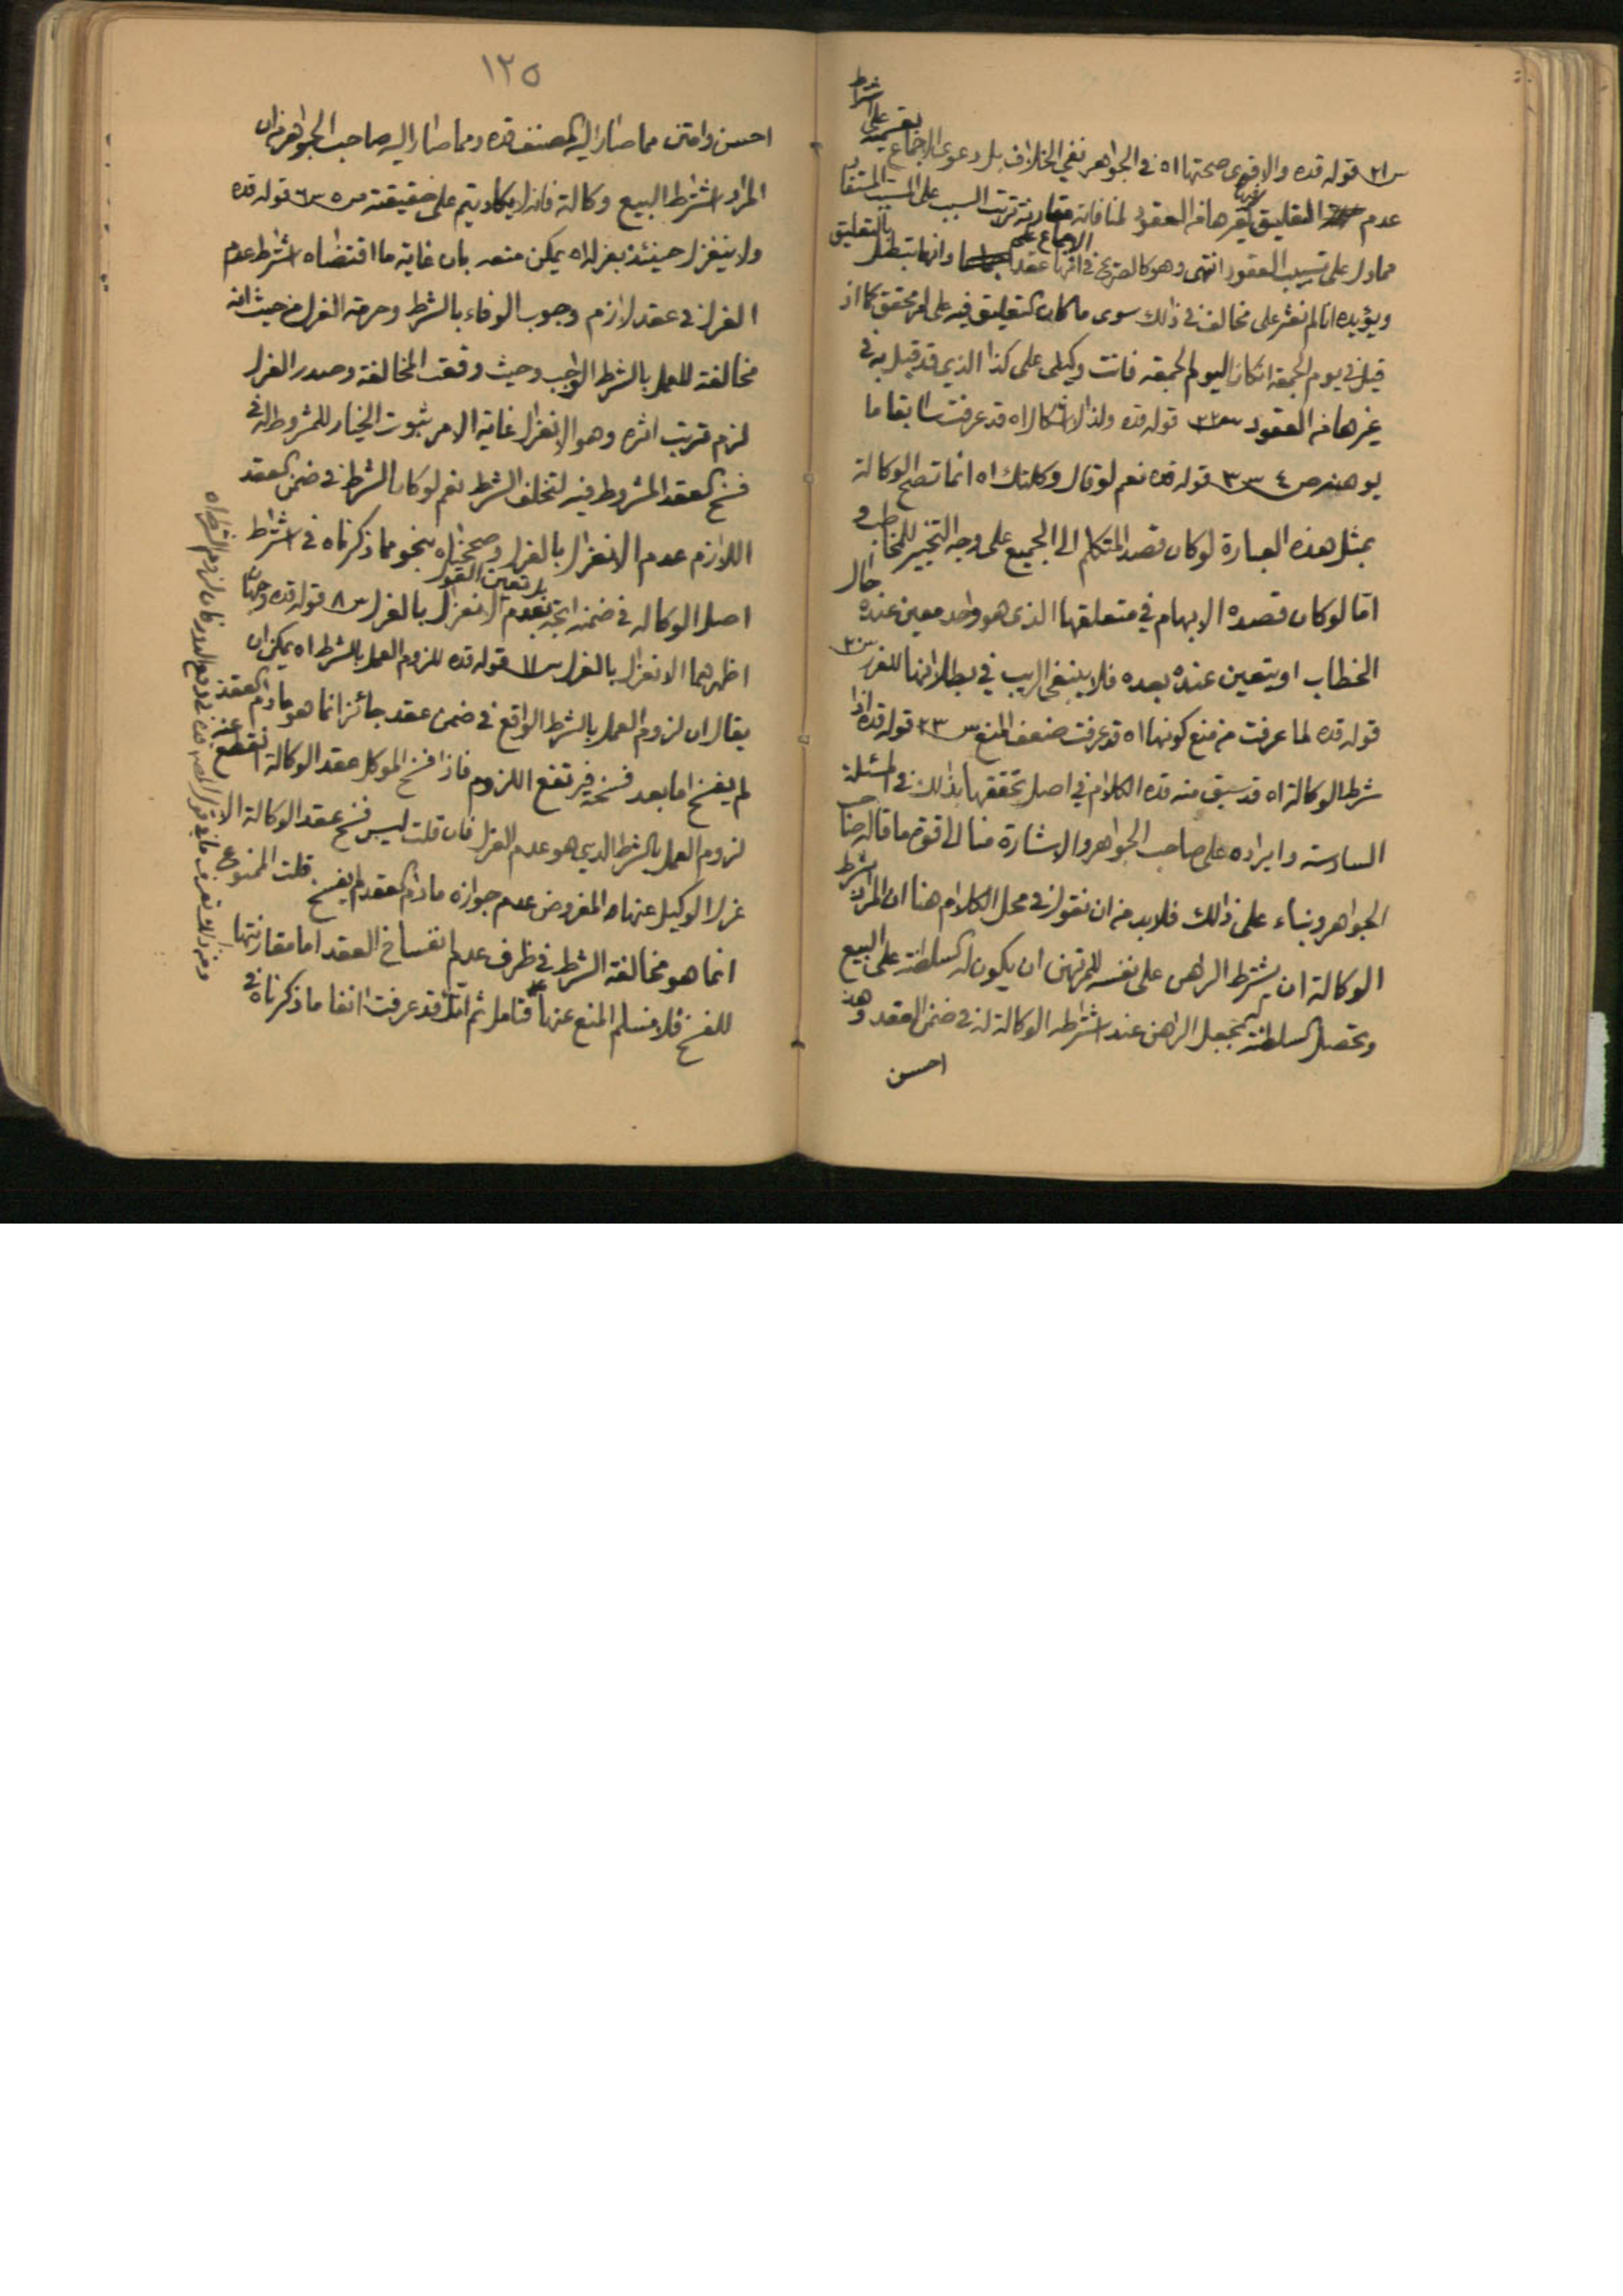 س ٣١ قوله قده والاقوى صحتها اه في الجواهر نفي الخلاف بل دعوى الاجماع بقسميه على اشتراط
عدم التعليق كغيرها من العقود لمنافاته مقارنة ترتب السبب على المسبب المستفاد
مما دل على تسبيب العقود انتهى وهو كالصريح في الاجماع على انها عقد وانها تبطل بالتعليق
ويؤيده انا لم نعثر على مخالف في ذلك سوى ما كان التعليق فيه على امر محقق كما اذا
قيل في يوم الجمعة ان كان اليوم الجمعة فانت وكيلي على كذا الذي قد قيل به في
غيرها من العقود س ٣٢ قوله قده ولذا لا اشكال اه قد عرفت سابقا ما
يوهنه ص ٤ س ٣ قوله قده نعم لو قال وكلتك اه انما تصح الوكالة
بمثل هذه العبارة لو كان قصد المتكلم الى الجميع على وجه التخيير للمخاطب و
اما لو كان قصده الابهام في متعلقها الذي هو واحد معين عنده حال
الخطاب او يتعين عنده بعده فلا ينبغي الريب في بطلانها للغرر س ٣٠
قوله قده لما عرفت من منع كونها اه قد عرفت ضعف المنع س ٣٣ قوله قده اذا
شرط الوكالة اه قد سبق منه قده الكلام في اصل تحققها بذلك في المسئلة
السادسة وايراده على صاحب الجواهر والاشارة منا الى قوة ما قاله صاحب
الجواهر وبناء على ذلك فلا بد من ان نقول في محل الكلام هنا ان المراد بشرط
الوكالة ان يشترط الراهن على نفسه للمرتهن ان يكون له السلطنة على البيع
وتحصل السلطنة بجعل الراهن عند اشتراطه الوكالة له في ضمن العقد وهذا
احسن
١٢٥
احسن وامتن مما صار اليه المصنف قده ومما صار اليه صاحب الجواهر من ان
المراد اشتراط البيع وكالة فانه لا يكاد يتم على حقيقته ص ٥ س ٦ قوله قده
ولا ينعزل حينئذ بعزله اه يمكن منعه بان غاية ما اقتضاه اشتراط عدم
العزل في عقد لازم وجوب الوفاء بالشرط وحرمة العزل من حيث انه
مخالفة للعمل بالشرط الواجب وحيث وقعت المخالفة وصدر العزل
لزم ترتب اثره وهو الانعزال غاية الامر ثبوت الخيار للمشروط له في
فسخ العقد المشروط فيه لتخلف الشرط نعم لو كان الشرط في ضمن العقد
اللازم عدم الانعزال بالعزل وصححناه بنحو مما ذكرناه في اشتراط
اصل الوكالة في ضمنه اتجه بل تعين القول بعدم الانعزال بالعزل س ٨ قوله قده وجهان
اظهرهما الانعزال بالعزل س ١١ قوله قده للزوم العمل بالشرط اه يمكن ان
يقال ان لزوم العمل بالشرط الواقع في ضمن عقد جائز انما هو مادام العقد
لم يفسخ اما بعد فسخه فيرتفع اللزوم فاذا فسخ الموكل عقد الوكالة انقطع عنه
لزوم العمل بالشرط الذي هو عدم العزل فان قلت ليس فسخ عقد الوكالة الا
عزل الوكيل عنها والمفروض عدم جوازه مادام العقد لم يفسخ قلت الممنوع
انما هو مخالفة الشرط في ظرف عدم انفساخ العقد اما مقارنتها
للفسخ فلا نسلم المنع عنها فتامل ثم انك قد عرفت انفا ما ذكرناه في